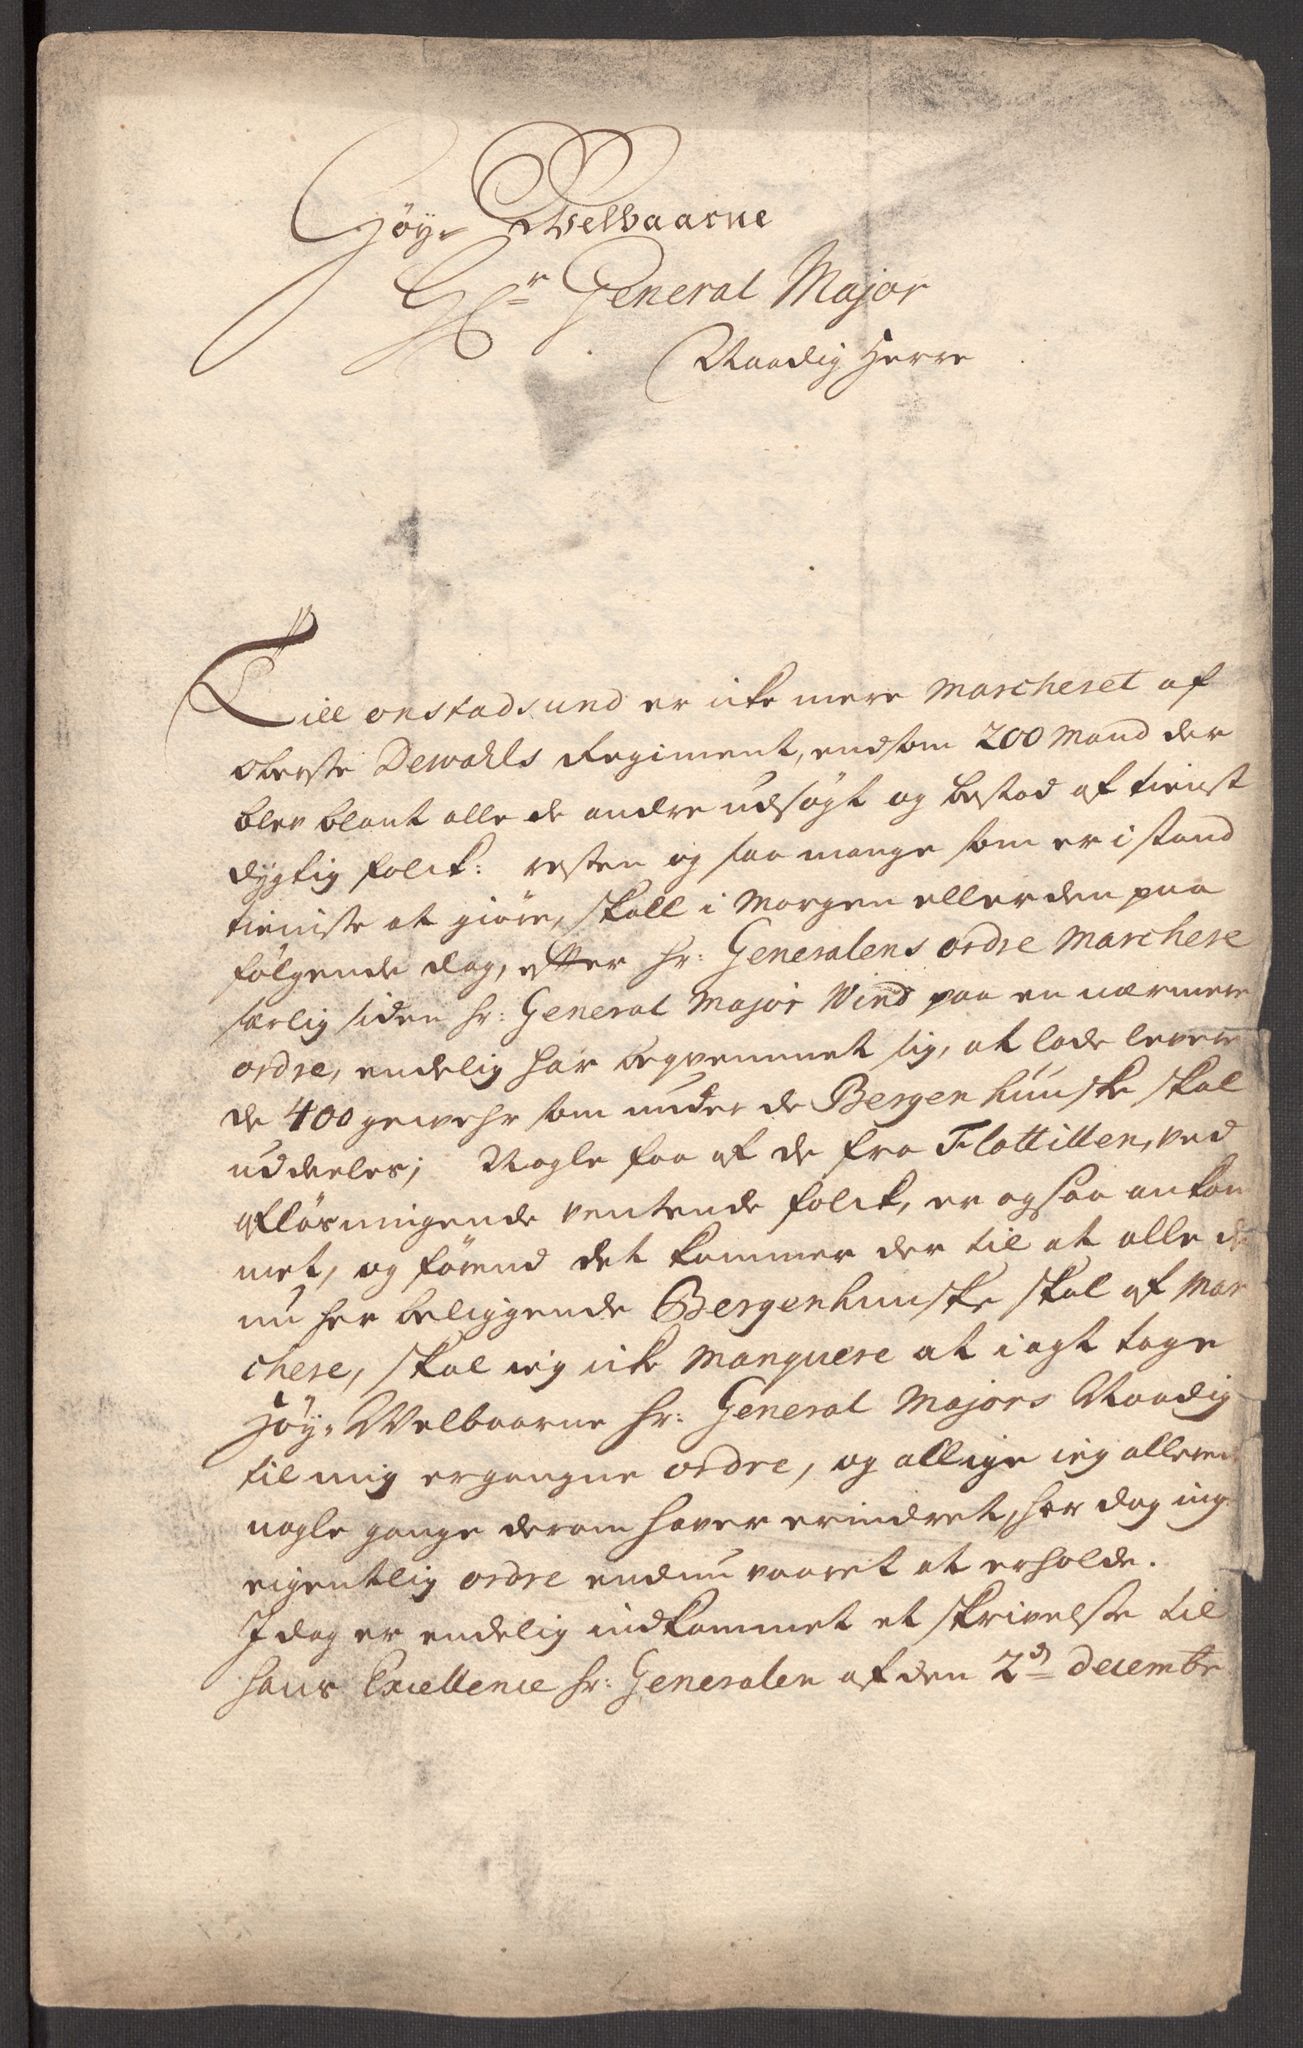 Høy- Welbaarne
Hr General Major
Naadig Herre
Till onstadsund er icke mere marcheret af
oberste Dewahls Regiment, end som 200 Mand der
blev blant alle de andre udsøgt og bestod af tienst
dygtig folck: resten og saa mange som er i stand
tieniste at giøre, skall i Morgen eller den paa
følgende dag, efter hr: Generalens ordre Marchere
særlig siden hr: General Major Wind paa en nærmere
ordre, endelig har beqvemmet sig, at lade levere
de 400 gewehr som under de Bergenhuuske skal
uddeeles; Nogle faa af de fra Flottillen, ved
afløsningende ventende folck, er ogsaa ankom
met, og førend det kommer der til at alle de
nu her beliggende Bergenhuuske skal af Mar
chere, skal ieg icke manquere at i agt tage
Høy- Welbaarne hr: General Majors Naadig
til mig ergangne ordre, og allige ieg allerede
nogle gange derom haver erindret, har dog ing
eigentlig ordre endnu vaaret at erholde.
I dag er endelig indkommet et skrivelse til
hans Excellence hr: Generalen af den 2d decembr